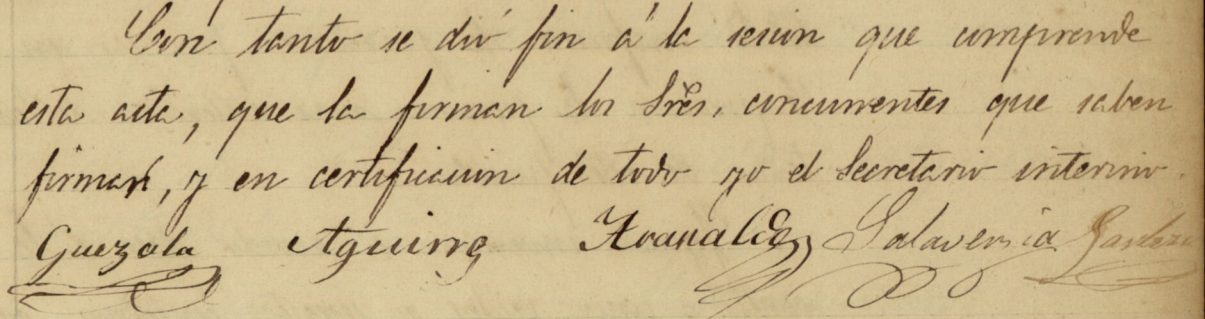 Con tanto se dió fin á la sesion que comprende
esta acta, que la firman los Sres. concurrentes que saben
firmar, y en certificacion de todo yo el Secretario interino.
Guezala Aguirre Salaverria